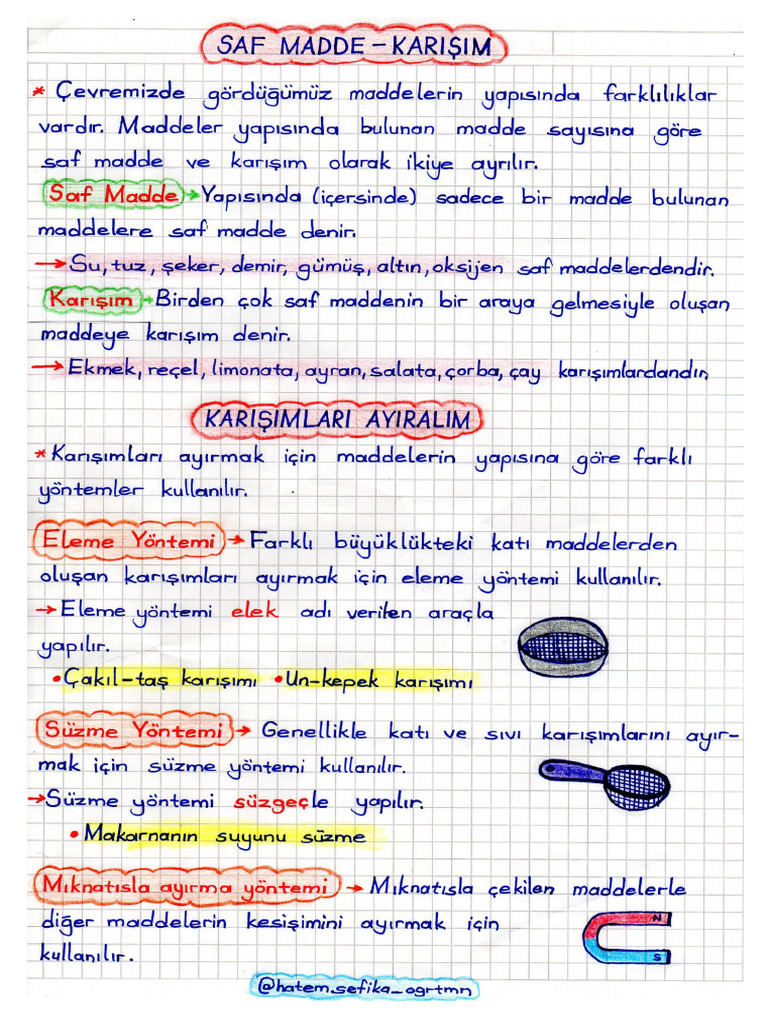 SAF MADDE - KARIŞIM
* Çevremizde gördüğümüz maddelerin yapısında farklılıklar
vardır. Maddeler yapısında bulunan madde sayısına göre
saf madde ve karışım olarak ikiye ayrılır.
Saf Madde → Yapısında (içersinde) sadece bir madde bulunan
maddelere saf madde denir.
→ Su, tuz, şeker, demir, gümüş, altın, oksijen saf maddelerdendir.
Karışım → Birden çok saf maddenin bir araya gelmesiyle oluşan
maddeye karışım denir.
→ Ekmek, reçel, limonata, ayran, salata, çorba, çay karışımlardandır.
KARIŞIMLARI AYIRALIM
* Karışımları ayırmak için maddelerin yapısına göre farklı
yöntemler kullanılır.
Eleme Yöntemi → Farklı büyüklükteki katı maddelerden
oluşan karışımları ayırmak için eleme yöntemi kullanılır.
→ Eleme yöntemi elek adı verilen araçla
yapılır.
• Çakıl-taş karışımı • Un-kepek karışımı
Süzme Yöntemi → Genellikle katı ve sıvı karışımlarını ayır-
mak için süzme yöntemi kullanılır.
→ Süzme yöntemi süzgeçle yapılır.
• Makarnanın suyunu süzme
Mıknatısla ayırma yöntemi → Mıknatısla çekilen maddelerle
diğer maddelerin kesişimini ayırmak için
kullanılır.
N
S
@hatem_sefika_ogrtmn